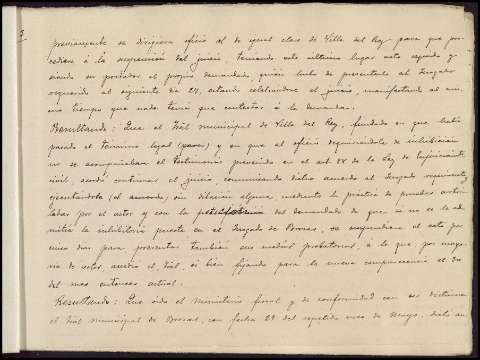 3
previamente se dirigiera oficio al de igual clase de Villa del Rey para que pro-
cediese á la suspensión del juicio, teniendo esto último lugar acto seguido y
siendo su portador el propio demandado, quien hubo de presentarlo al Juzgado
requerido al siguiente día 24, estando celebrándose el juicio, manifestando al mis-
mo tiempo que nada tenía que contestar á la demanda.
Resultando: Que el Tral municipal de Villa del Rey, fundado en que había
pasado el término legal (pasos) y en que al oficio requiriéndole de inhibición
no se acompañaban el testimonio prevenido en el art 88 de la Ley de Enjuiciamto
civil, acordó continuar el juicio, comunicando dicho acuerdo al Juzgado requirente y
ejecutándolo (el acuerdo) sin dilación alguna, mediante la práctica de pruebas articu-
ladas por el actor y con la del demandado de que si no se le ad-
mitía la inhibitoria puesta en el Juzgado de Brozas, se suspendiera el acto por
cinco días para presentar también sus medios probatorios, á lo que, por mayo-
ría de votos, accedió el Tral, si bien fijando para la nueva comparecencia el
del mes entonces actual.
Resultando: Que oído el Ministerio fiscal y de conformidad con su dictamen
el Tral municipal de Brozas, con fecha 29 del repetido mes de Mayo, dictó au